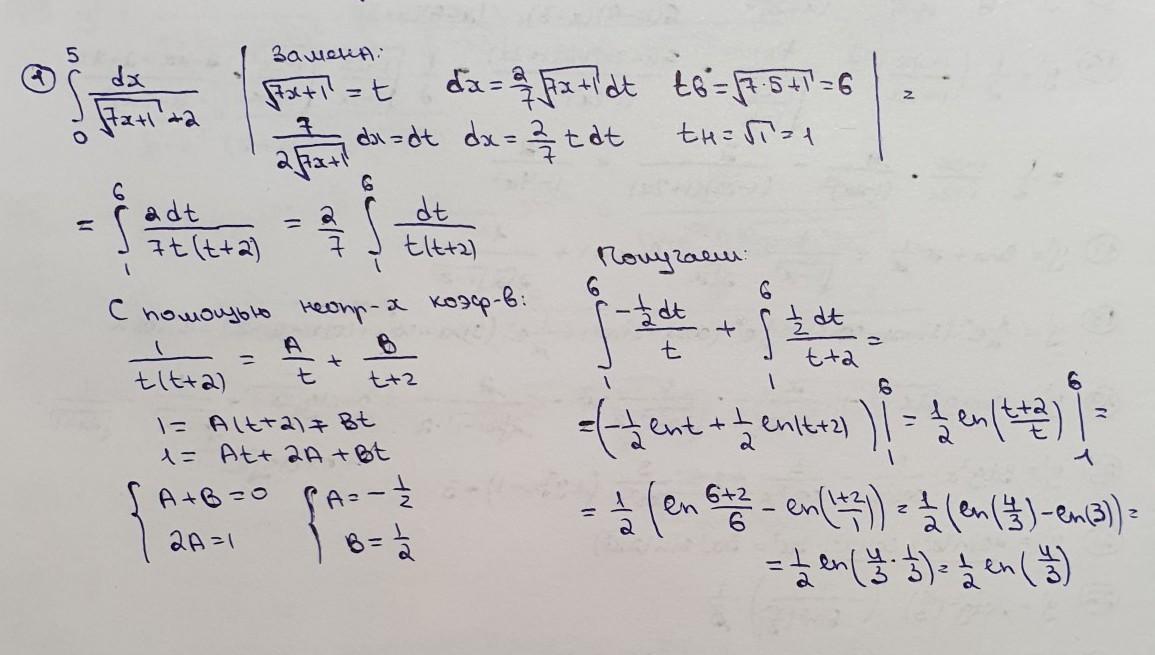 ① ∫₀⁵ dx/(√(7x+1)+2) | Замена: √(7x+1) = t   dx = 2/7 √(7x+1) dt   tв = √(7·5+1) = 6 | =
7/(2√(7x+1)) dx = dt   dx = 2/7 t dt   tн = √1 = 1
= ∫₁⁶ 2dt/(7t(t+2)) = 2/7 ∫₁⁶ dt/(t(t+2))
С помощью неопр-х коэф-в:
1/(t(t+2)) = A/t + B/(t+2)
1 = A(t+2) + Bt
1 = At + 2A + Bt
{ A+B=0   { A = -1/2
{ 2A=1   { B = 1/2
Получаем:
∫₁⁶ -1/2 dt/t + ∫₁⁶ 1/2 dt/(t+2) =
= (-1/2 ln t + 1/2 ln(t+2)) |₁⁶ = 1/2 ln((t+2)/t) |₁⁶ =
= 1/2 (ln (6+2)/6 - ln((1+2)/1)) = 1/2 (ln(4/3) - ln(3)) =
= 1/2 ln(4/3 · 1/3) = 1/2 ln(4/3)